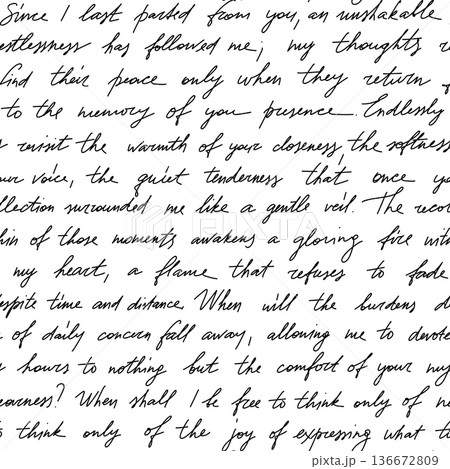 Since I last parted from you, an unshakable
estlessness has followed me; my thoughts r
find their peace only when they return
to the memory of you presence. Endlessly
revisit the warmth of your closeness, the softness
our voice, the quiet tenderness that once yo
llection surrounded me like a gentle veil. The recor
hin of those moments awakens a gloring fire with
my heart, a flame that refuses to fade
espite time and distance. When will the burdens d
of daily concern fall away, allowing me to devote
hours to nothing but the comfort of your my
earness? When shall I be free to think only of ne
to think only of the joy of expressing what t
PIXTA
136672809